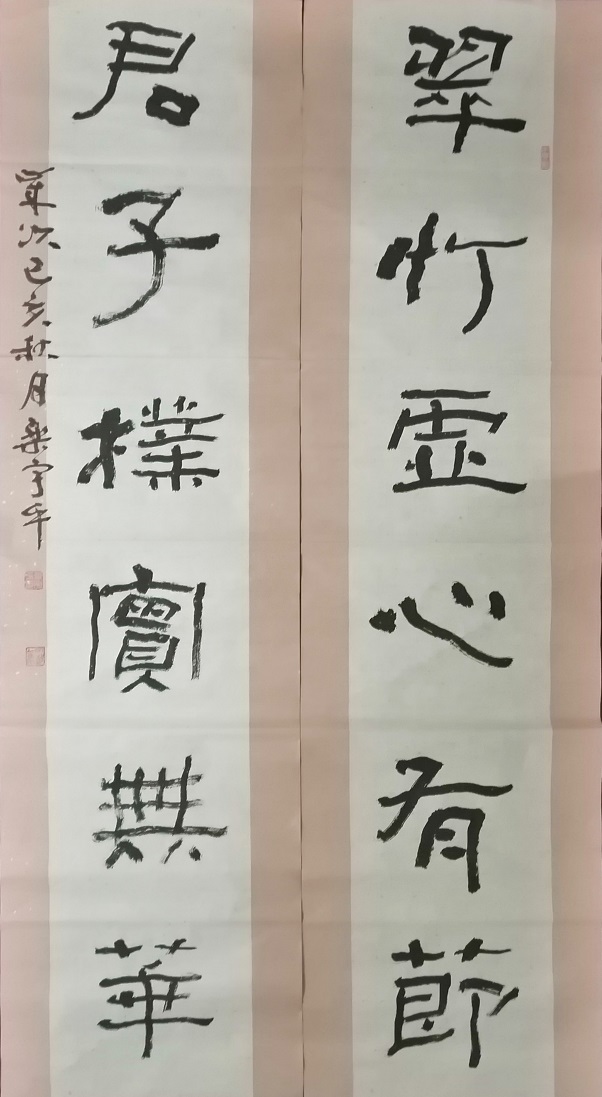 翠竹虛心有節
君子樸實無華
歲次己亥秋月